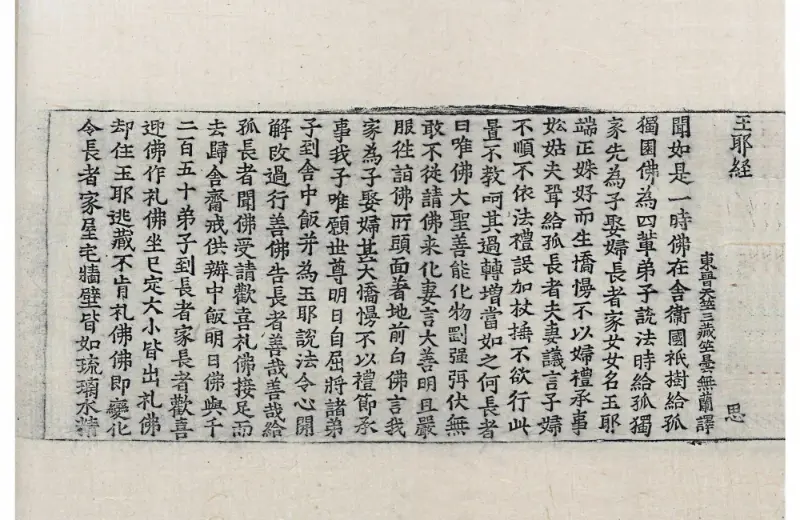 玉耶経
東晉天竺三藏竺曇無蘭譯　思
聞如是一時佛在舎衛國祇樹給孤
獨園佛為四輩弟子說法時給孤獨
家先為子娶婦長者家女女名玉耶
端正姝好而生憍慢不以婦禮承事
妐姑夫聟給孤長者夫妻議言子婦
不順不依法禮設加杖捶不欲行此
置不教呵其過轉増當如之何長者
曰唯佛大聖善能化物剛强弭伏無
敢不從請佛来化妻言大善明旦嚴
服徃詣佛所頭面著地前白佛言我
家為子娶婦甚大憍慢不以禮節承
事我子唯願世尊明日自屈將諸弟
子到舎中飯并為玉耶說法令心開
解改過行善佛告長者善哉善哉給
孤長者聞佛受請歡喜礼佛接足而
去歸舎齋戒供辦中飯明日佛與千
二百五十弟子到長者家長者歡喜
迎佛作礼佛坐已定大小皆出礼佛
却住玉耶逃藏不肯礼佛佛即變化
令長者家屋宅牆壁皆如琉璃水精